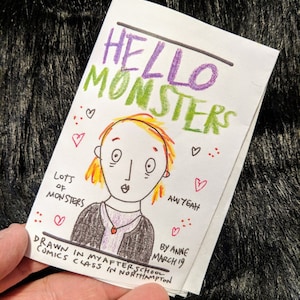 HELLO
MONSTERS
LOTS
OF
MONSTERS
AW YEAH
BY ANNE
MARCH 19
DRAWN IN MY AFTERSCHOOL
COMICS CLASS IN NORTHAMPTON